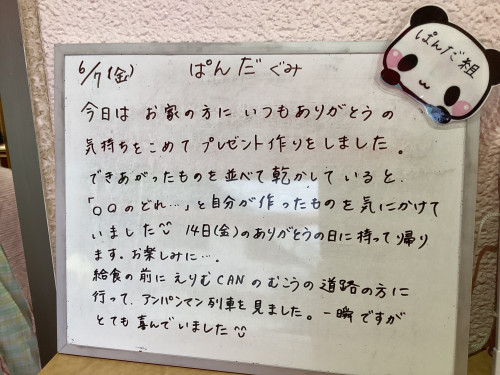 6/7(金) ぱんだぐみ
ぱんだ組
今日は お家の方に いつもありがとうの
気持ちをこめて プレゼント作りをしました。
できあがったものを並べて乾かしていると、
「○○のどれ…」と自分が作ったものを気にかけて
いました 14日(金)のありがとうの日に持って帰り
ます。お楽しみに…。
給食の前に えりむCANのむこうの道路の方に
行って、アンパンマン列車を見ました。一瞬ですが
とても喜んでいました